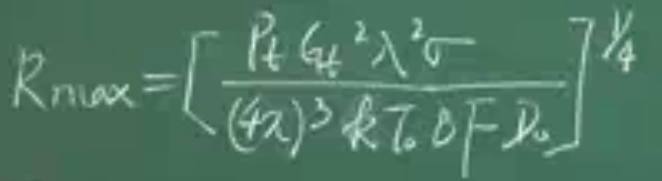 Rmax = [ Pt Gt² λ² σ / (4π)³ k T₀ B F D₀ ]^1/4